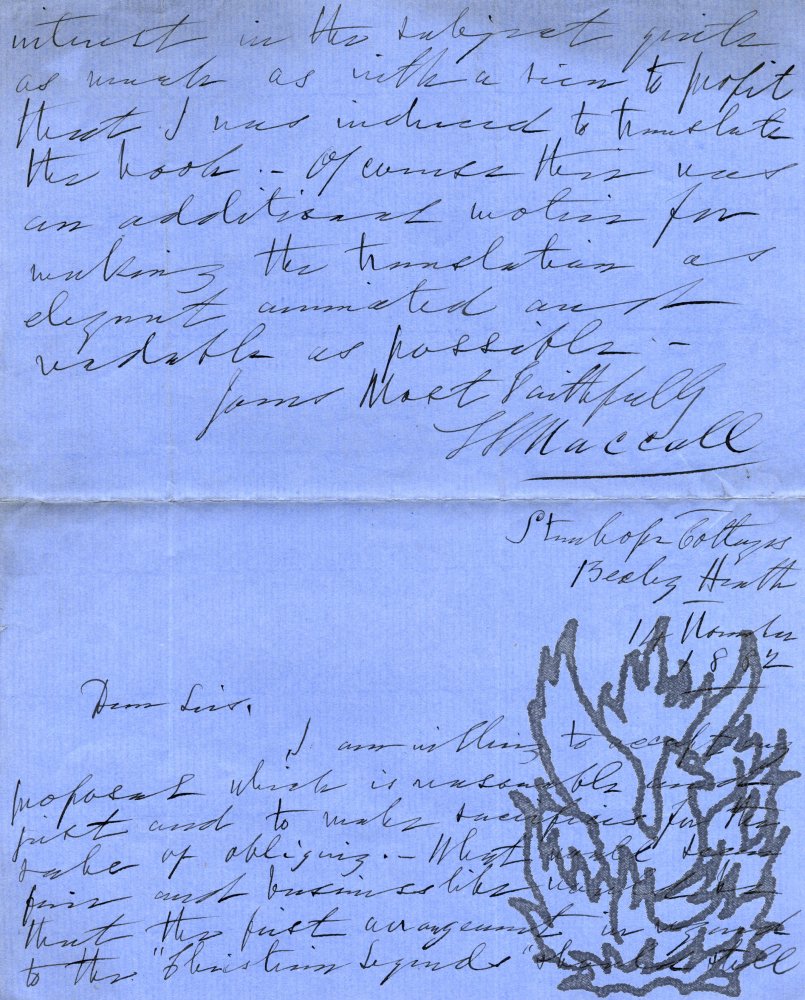 interest in the subject quite
as much as with a view to profit
that I was induced to translate
the book. – Of course this was
an additional motive for
making the translation as
elegant animated and
readable as possible. –
Yours Most Faithfully
Maccall
Stanhope Cottages
Bexley Heath
14 November
1862
Dear Sirs.
I am willing to accept any
proposal which is reasonable and
just and to make sacrifices for the
sake of obliging. – What would seem
fair and businesslike would be
that the first arrangement in regard
to the "Christian Legends" should still